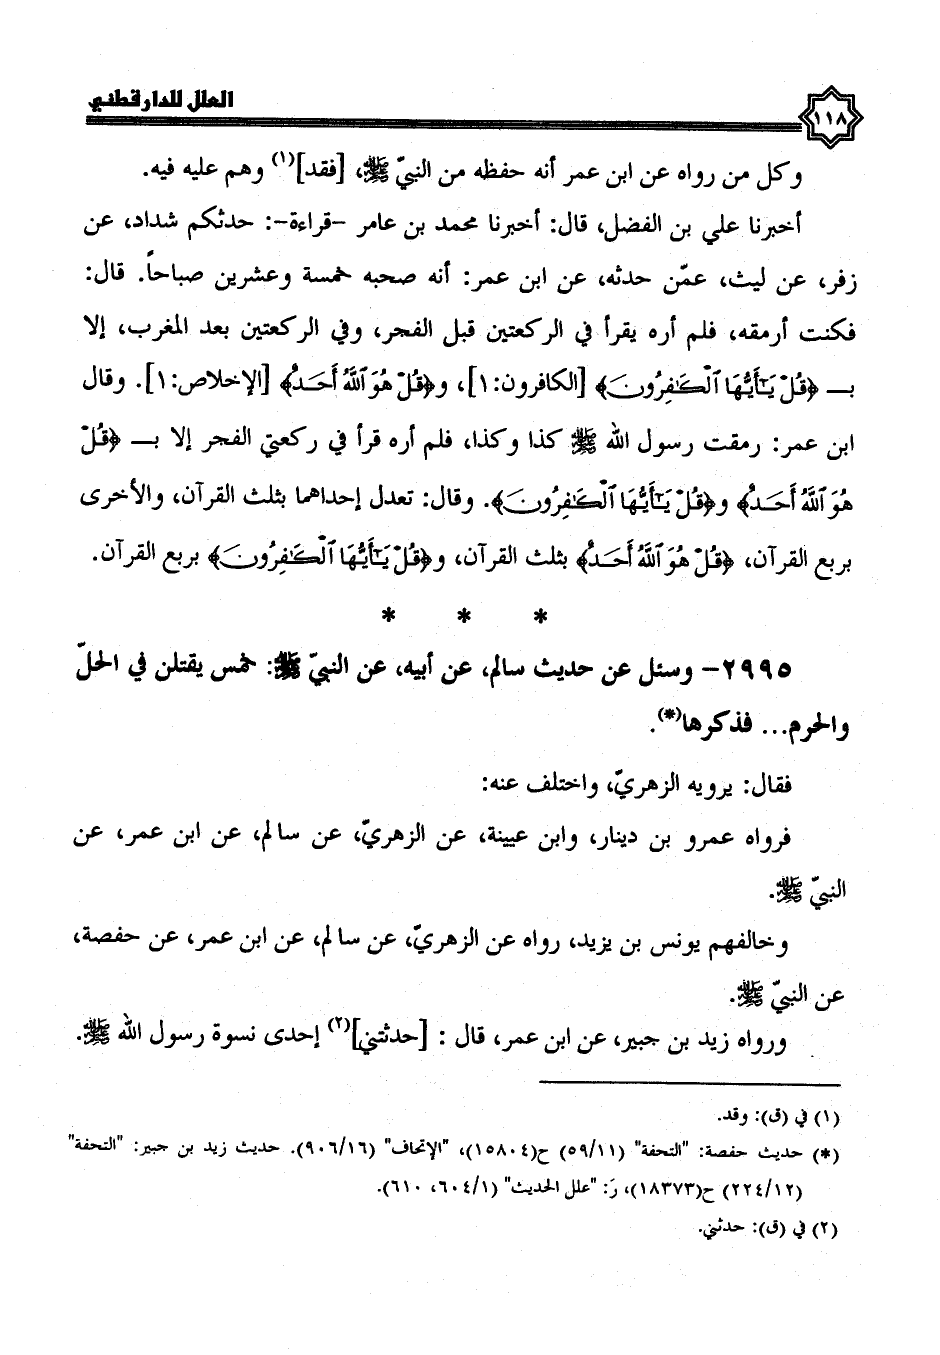 العلل للدارقطني
١١٨
وكل من رواه عن ابن عمر أنه حفظه من النبيّ ﷺ، [فقد](١) وهم عليه فيه.
أخبرنا علي بن الفضل، قال: أخبرنا محمد بن عامر -قراءة-: حدثكم شداد، عن
زفر، عن ليث، عمّن حدثه، عن ابن عمر: أنه صحبه خمسة وعشرين صباحاً. قال:
فكنت أرمقه، فلم أره يقرأ في الركعتين قبل الفجر، وفي الركعتين بعد المغرب، إلا
بـ ﴿قُلْ يَٰٓأَيُّهَا ٱلْكَٰفِرُونَ﴾ [الكافرون:١]، و﴿قُلْ هُوَ ٱللَّهُ أَحَدٌ﴾ [الإخلاص:١]. وقال
ابن عمر: رمقت رسول الله ﷺ كذا وكذا، فلم أره قرأ في ركعتي الفجر إلا بـ ﴿قُلْ
هُوَ ٱللَّهُ أَحَدٌ﴾ و﴿قُلْ يَٰٓأَيُّهَا ٱلْكَٰفِرُونَ﴾. وقال: تعدل إحداهما بثلث القرآن، والأخرى
بربع القرآن، ﴿قُلْ هُوَ ٱللَّهُ أَحَدٌ﴾ بثلث القرآن، و﴿قُلْ يَٰٓأَيُّهَا ٱلْكَٰفِرُونَ﴾ بربع القرآن.
* * *
٢٩٩٥- وسئل عن حديث سالم، عن أبيه، عن النبيّ ﷺ: خمس يقتلن في الحلّ
والحرم... فذكرها(*).
فقال: يرويه الزهريّ، واختلف عنه:
فرواه عمرو بن دينار، وابن عيينة، عن الزهريّ، عن سالم، عن ابن عمر، عن
النبيّ ﷺ.
وخالفهم يونس بن يزيد، رواه عن الزهريّ، عن سالم، عن ابن عمر، عن حفصة،
عن النبيّ ﷺ.
ورواه زيد بن جبير، عن ابن عمر، قال : [حدثتني](٢) إحدى نسوة رسول الله ﷺ.
(١) في (ق): وقد.
(*) حديث حفصة: "التحفة" (٥٩/١١) ح(١٥٨٠٤)، "الإتحاف" (٩٠٦/١٦). حديث زيد بن جبير: "التحفة"
(٢٢٤/١٢) ح(١٨٣٧٣)، رَ: "علل الحديث" (٦٠٤/١، ٦١٠).
(٢) في (ق): حدثني.